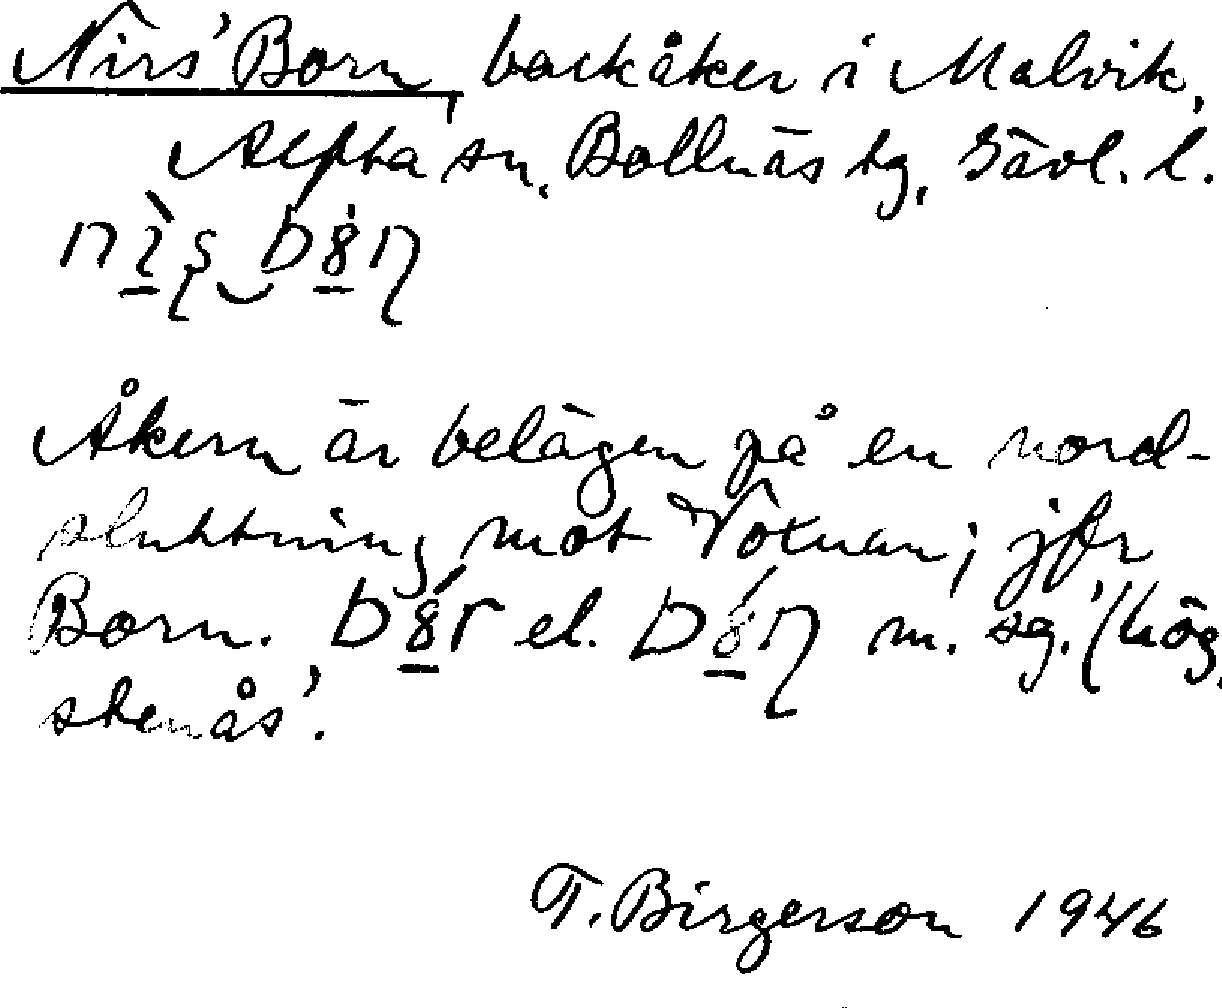 Nirs' Born, backåker i Malvik,
Alfta sn, Bollnäs tg, Gävl. l.
Åkern är belägen på en nord-
sluttning mot Voxnan; jfr
Born. el. m. sg. 'hög,
stenås'.
T. Birgerson 1946